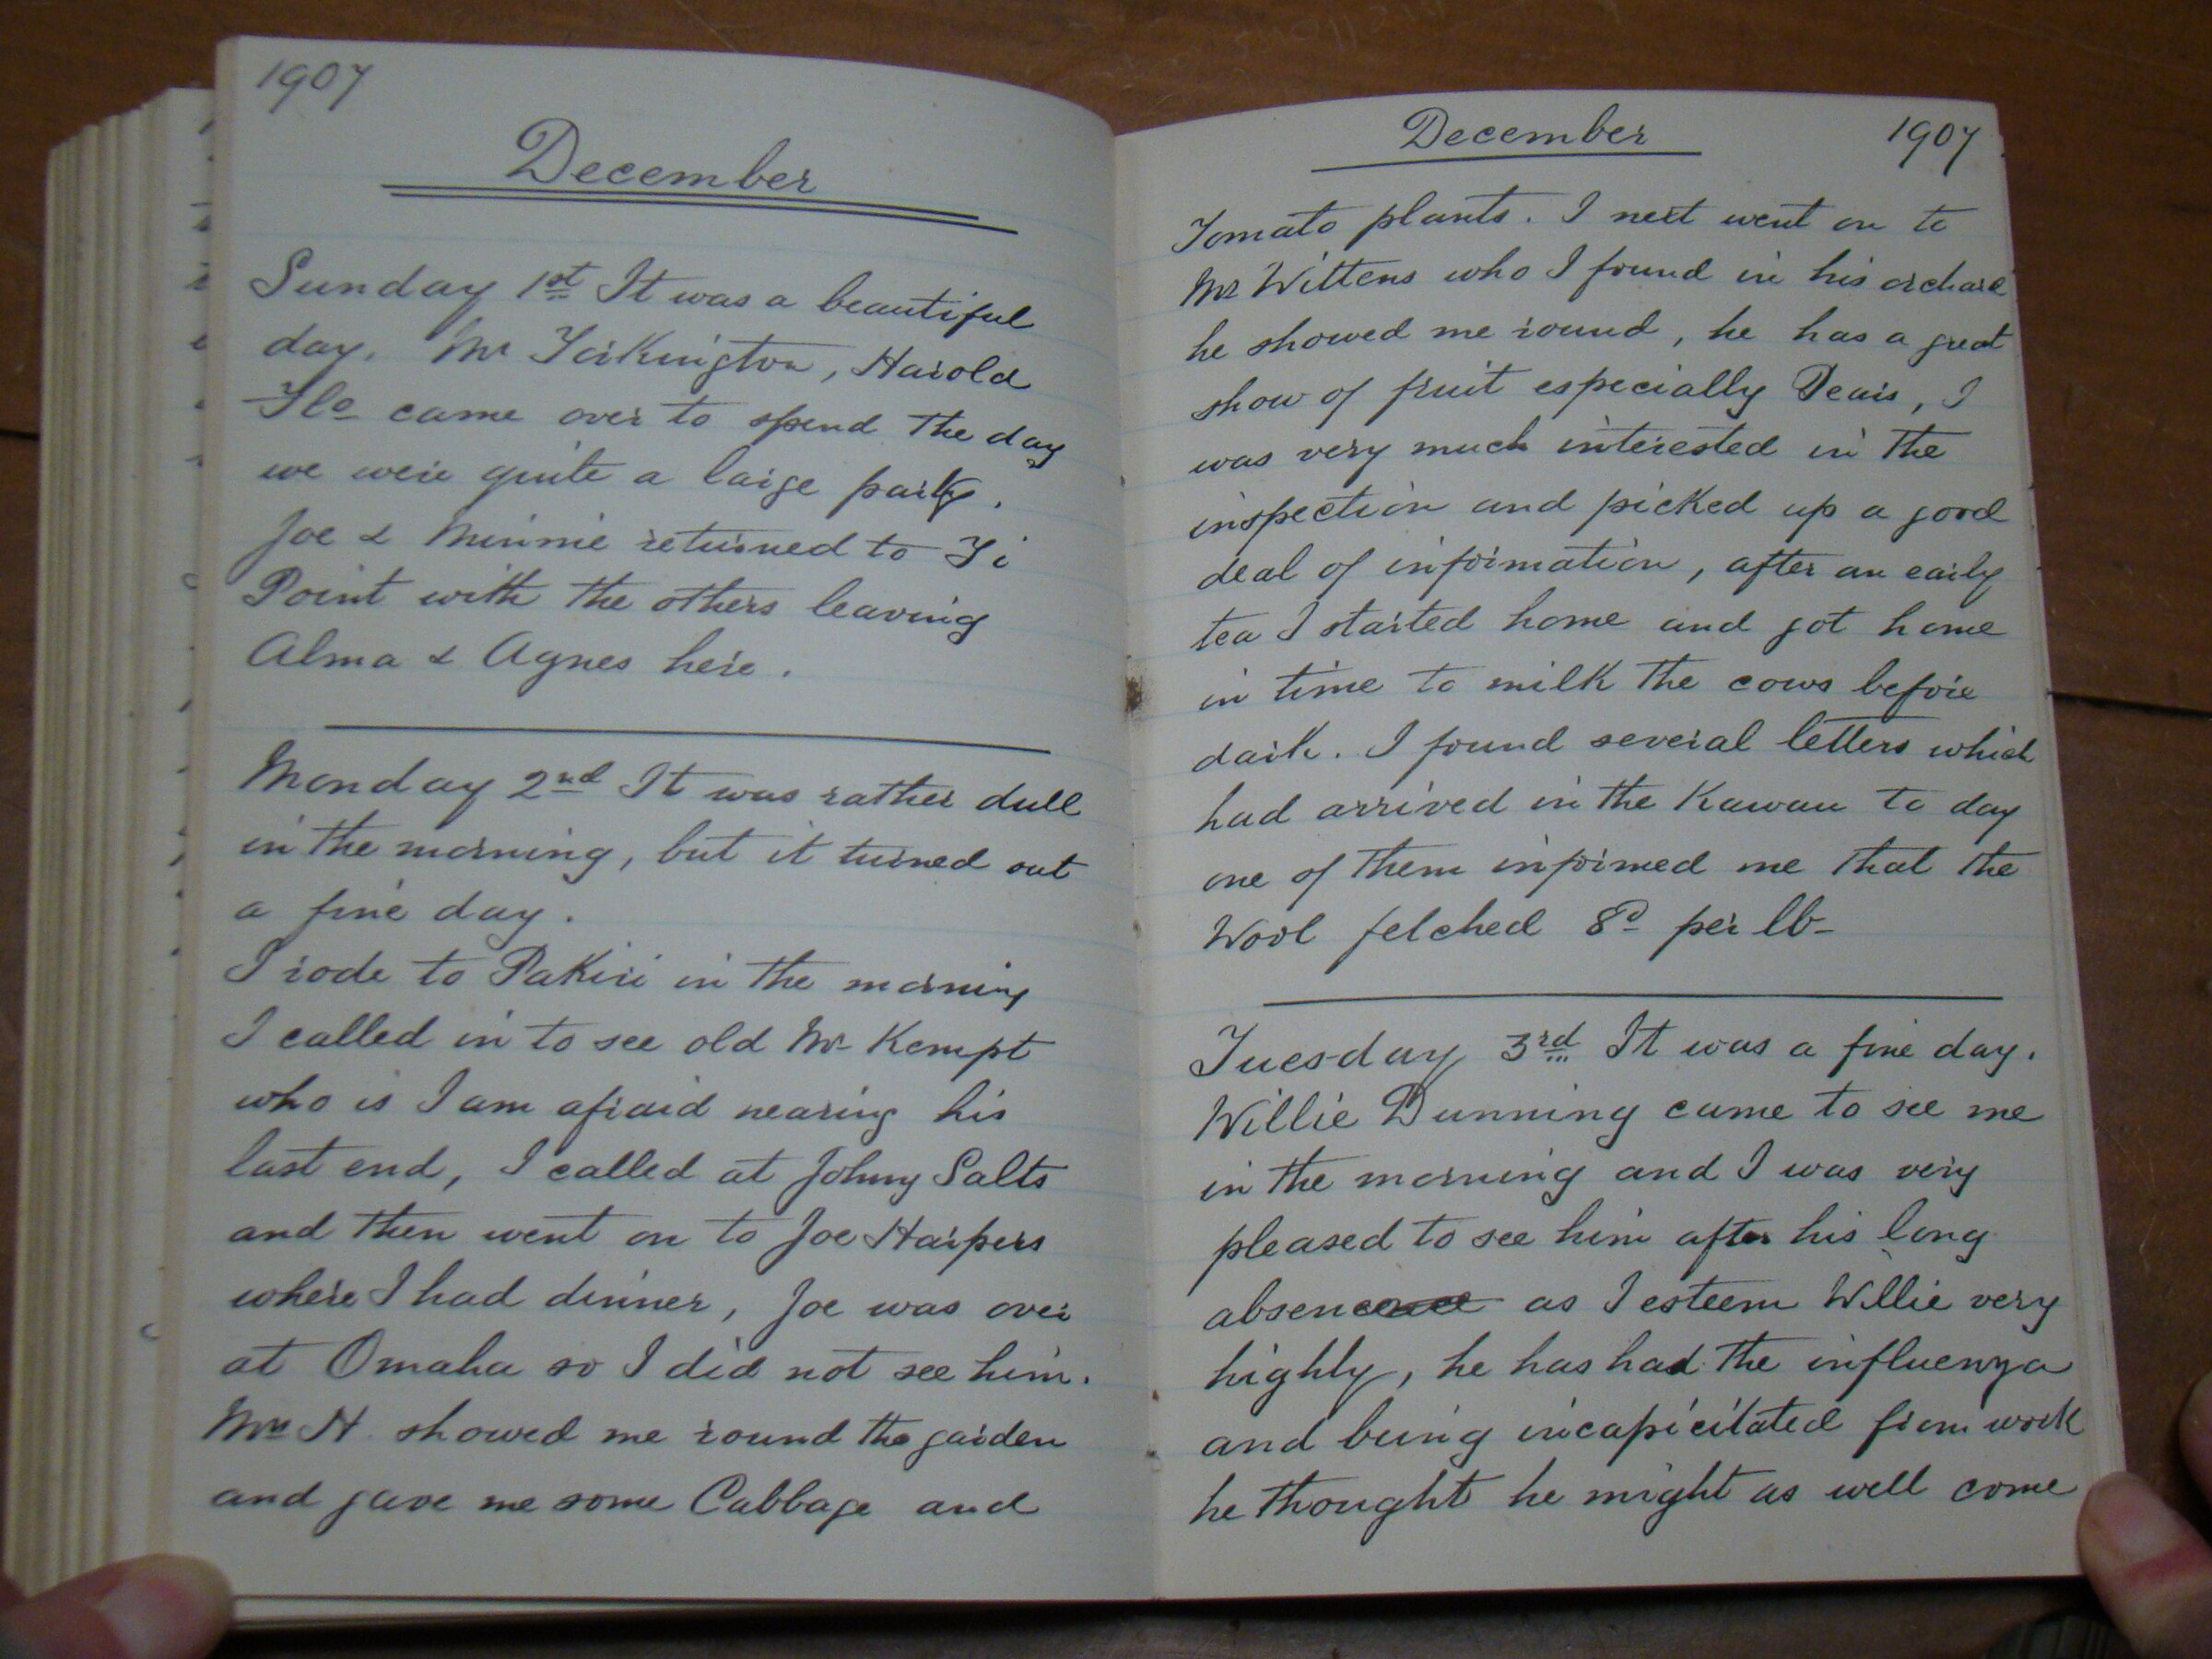 1907
December
Sunday 1st It was a beautiful
day. Mr Torkington, Harold
Flo came over to spend the day
we were quite a large party.
Joe & Minnie returned to Ti
Point with the others leaving
Alma & Agnes here.
Monday 2nd It was rather dull
in the morning, but it turned out
a fine day.
I rode to Pakiri in the morning
I called in to see old Mr Kempt
who is I am afraid nearing his
last end, I called at Johny Salts
and then went on to Joe Harpers
where I had dinner, Joe was over
at Omaha so I did not see him.
Mrs H. showed me round the garden
and gave me some Cabbage and
December 1907
Tomato plants. I next went on to
Mr Wittens who I found in his orchard
he showed me round, he has a great
show of fruit especially Pears, I
was very much interested in the
inspection and picked up a good
deal of information, after an early
tea I started home and got home
in time to milk the cows before
dark. I found several letters which
had arrived in the Kawau to day
one of them informed me that the
Wool fetched 8d per lb-
Tuesday 3rd It was a fine day.
Willie Dunning came to see me
in the morning and I was very
pleased to see him after his long
absence as I esteem Willie very
highly, he has had the influenza
and being incapicitated from work
he thought he might as well come